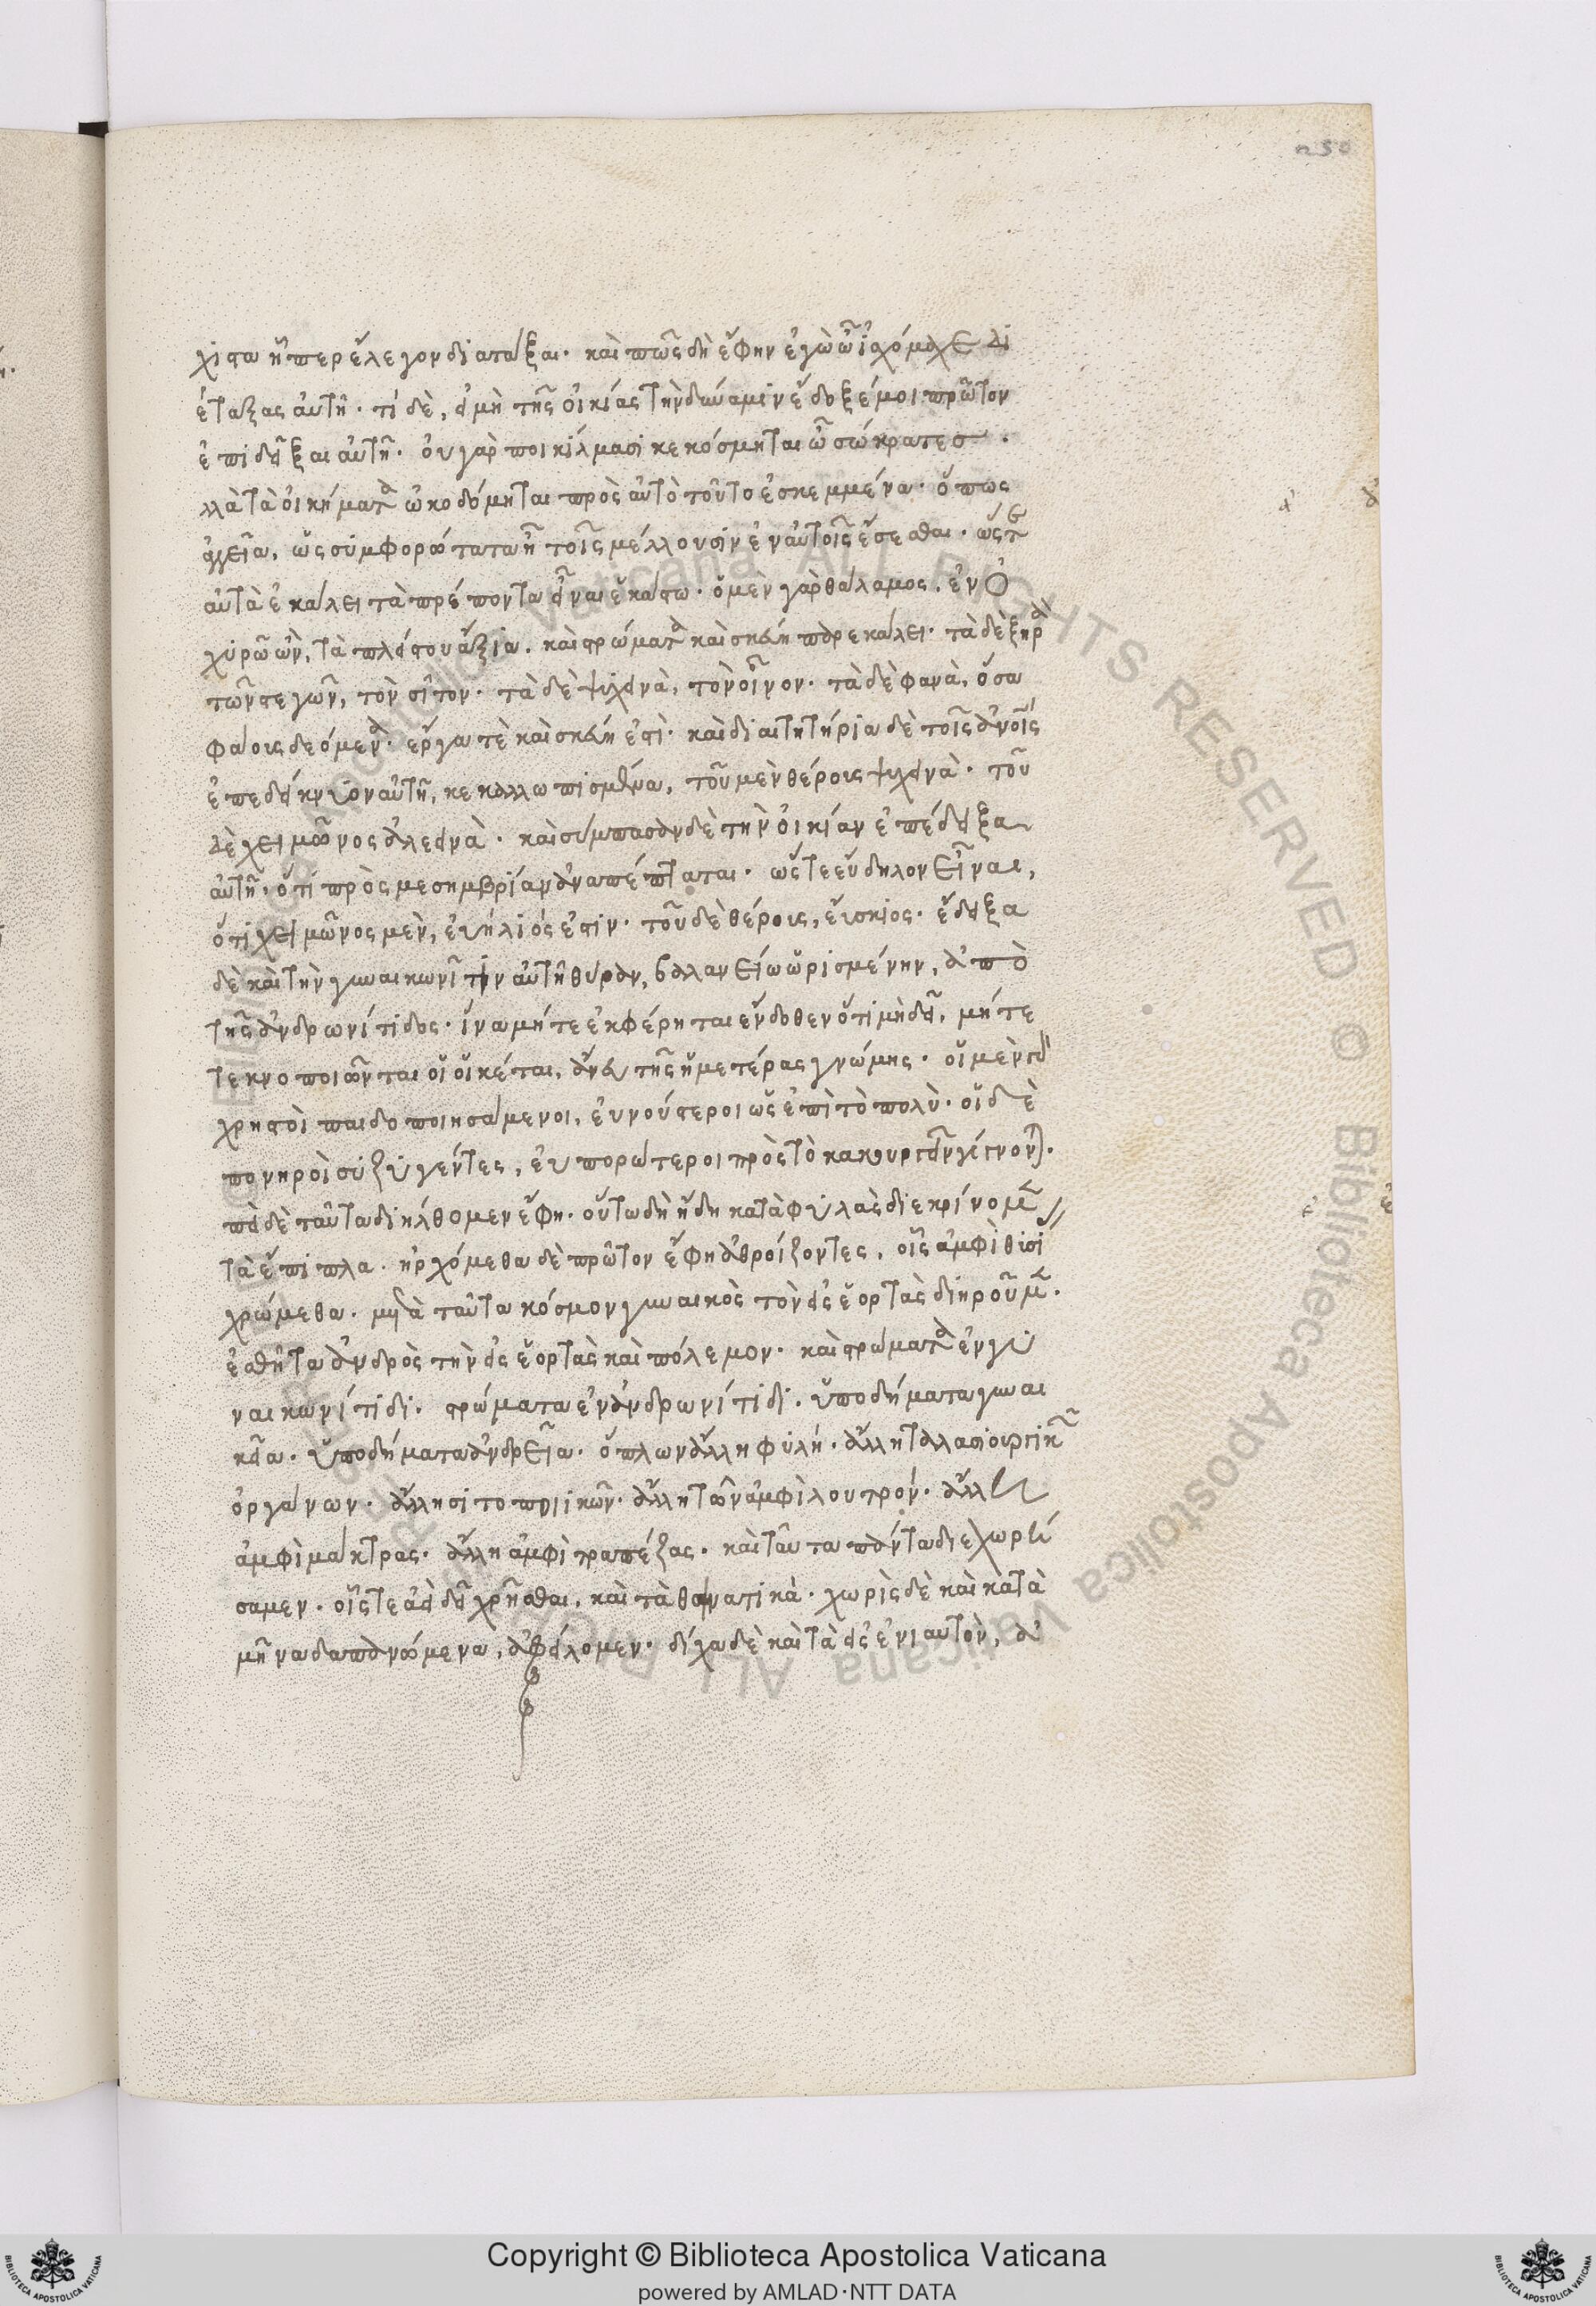 250
χιστα ᾗπερ ἔλεγον διατάξαι. καὶ πῶς δὴ ἔφην ἐγὼ ὦ ἰσχόμαχε δι
έταξας αὐτῇ. τί δὲ, εἰ μὴ τῆς οἰκίας τὴν δύναμιν ἔδοξέ μοι πρῶτον
ἐπιδεῖξαι αὐτῇ. οὐ γὰρ ποικίλμασι κεκόσμηται ὦ σώκρατες.
λλὰ τὰ οἰκήματα ὠκοδόμηται πρὸς αὐτὸ τοῦτο ἐσκεμμένα. ὅπως
ἀγγεῖα, ὡς συμφορώτατα ᾖ τοῖς μέλλουσιν ἐν αὐτοῖς ἔσεσθαι. ὥστε
αὐτὰ ἐκάλει τὰ πρέποντα εἶναι ἑκάστω. ὁ μὲν γὰρ θάλαμος, ἐν ὀ
χυρῶ ὢν, τὰ πλείστου ἄξια. καὶ στρώματα καὶ σκεύη παρεκάλει. τὰ δὲ ξηρὰ
τῶν στεγῶν, τὸν σῖτον. τὰ δὲ ψυχεινὰ, τὸν οἶνον. τὰ δὲ φανὰ, ὅσα
φάους δεόμενα. ἔργα τὲ καὶ σκεύη ἐστὶ. καὶ διαιτητήρια δὲ τοῖς ἀνοῖς
ἐπεδείκνυον αὐτῇ, κεκαλλωπισμένα, τοῦ μὲν θέρους ψυχεινὰ. τοῦ
δὲ χειμῶνος ἀλεεινὰ. καὶ σύμπασαν δὲ τὴν οἰκίαν ἐπέδειξα
αὐτῇ. ὅτι πρὸς μεσημβρίαν ἀναπέπταται. ὥστε εὔδηλον εἶναι,
ὅτι χειμῶνος μὲν, εὐήλιός ἐστιν. τοῦ δὲ θέρους, εὔσκιος. ἔδειξα
δὲ καὶ τὴν γυναικωνῖτιν αὐτῇ θύραν, βαλανείω ὡρισμένην, ἀπὸ
τῆς ἀνδρωνίτιδος. ἵνα μήτε ἐκφέρηται ἔνδοθεν ὅτι μὴ δεῖ, μήτε
τεκνοποιῶνται οἱ οἰκέται, ἄνευ τῆς ἡμετέρας γνώμης. οἱ μὲν γὰρ
χρηστοὶ παιδοποιησάμενοι, εὐνούστεροι ὡς ἐπὶ τὸ πολὺ. οἱ δὲ
πονηροὶ συζυγέντες, εὐπορώτεροι πρὸς τὸ κακουργεῖν γίγνονται.
πεὶ δὲ ταῦτα διήλθομεν ἔφη. οὕτω δὴ ἤδη κατὰ φυλὰς διεκρίνομεν
τὰ ἔπιπλα. ἠρχόμεθα δὲ πρῶτον ἔφη ἀθροίζοντες, οἷς ἀμφὶ θυσί
χρώμεθα. μετὰ ταῦτα κόσμον γυναικὸς τὸν εἰς ἑορτὰς διηροῦμεν.
ἐσθῆτα ἀνδρὸς τὴν εἰς ἑορτὰς καὶ πόλεμον. καὶ στρώματα ἐν γυ
ναικωνίτιδι. στρώματα ἐν ἀνδρωνίτιδι. ὑποδήματα γυναι
κεῖα. ὑποδήματα ἀνδρεῖα. ὅπλων ἄλλη φυλή. ἄλλη ταλασιουργικῶν
ὀργάνων. ἄλλη σιτοποιικῶν. ἄλλη τῶν ἀμφὶ λουτρόν. ἄλλη
ἀμφὶ μάκτρας. ἄλλη ἀμφὶ τραπέζας. καὶ ταῦτα πάντα διεχωρί
σαμεν. οἷς τε ἀεὶ δεῖ χρῆσθαι, καὶ τὰ θοινατικὰ. χωρὶς δὲ καὶ κατὰ
μῆνα δαπανώμενα, ἀφείλομεν. δίχα δὲ καὶ τὰ εἰς ἐνιαυτὸν, ἀ
Copyright © Biblioteca Apostolica Vaticana
powered by AMLAD·NTT DATA